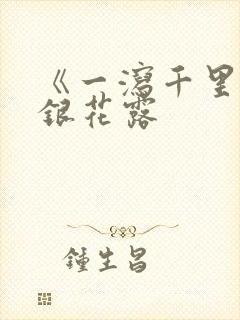 《一瀉千里
銀花露
鍾生昌